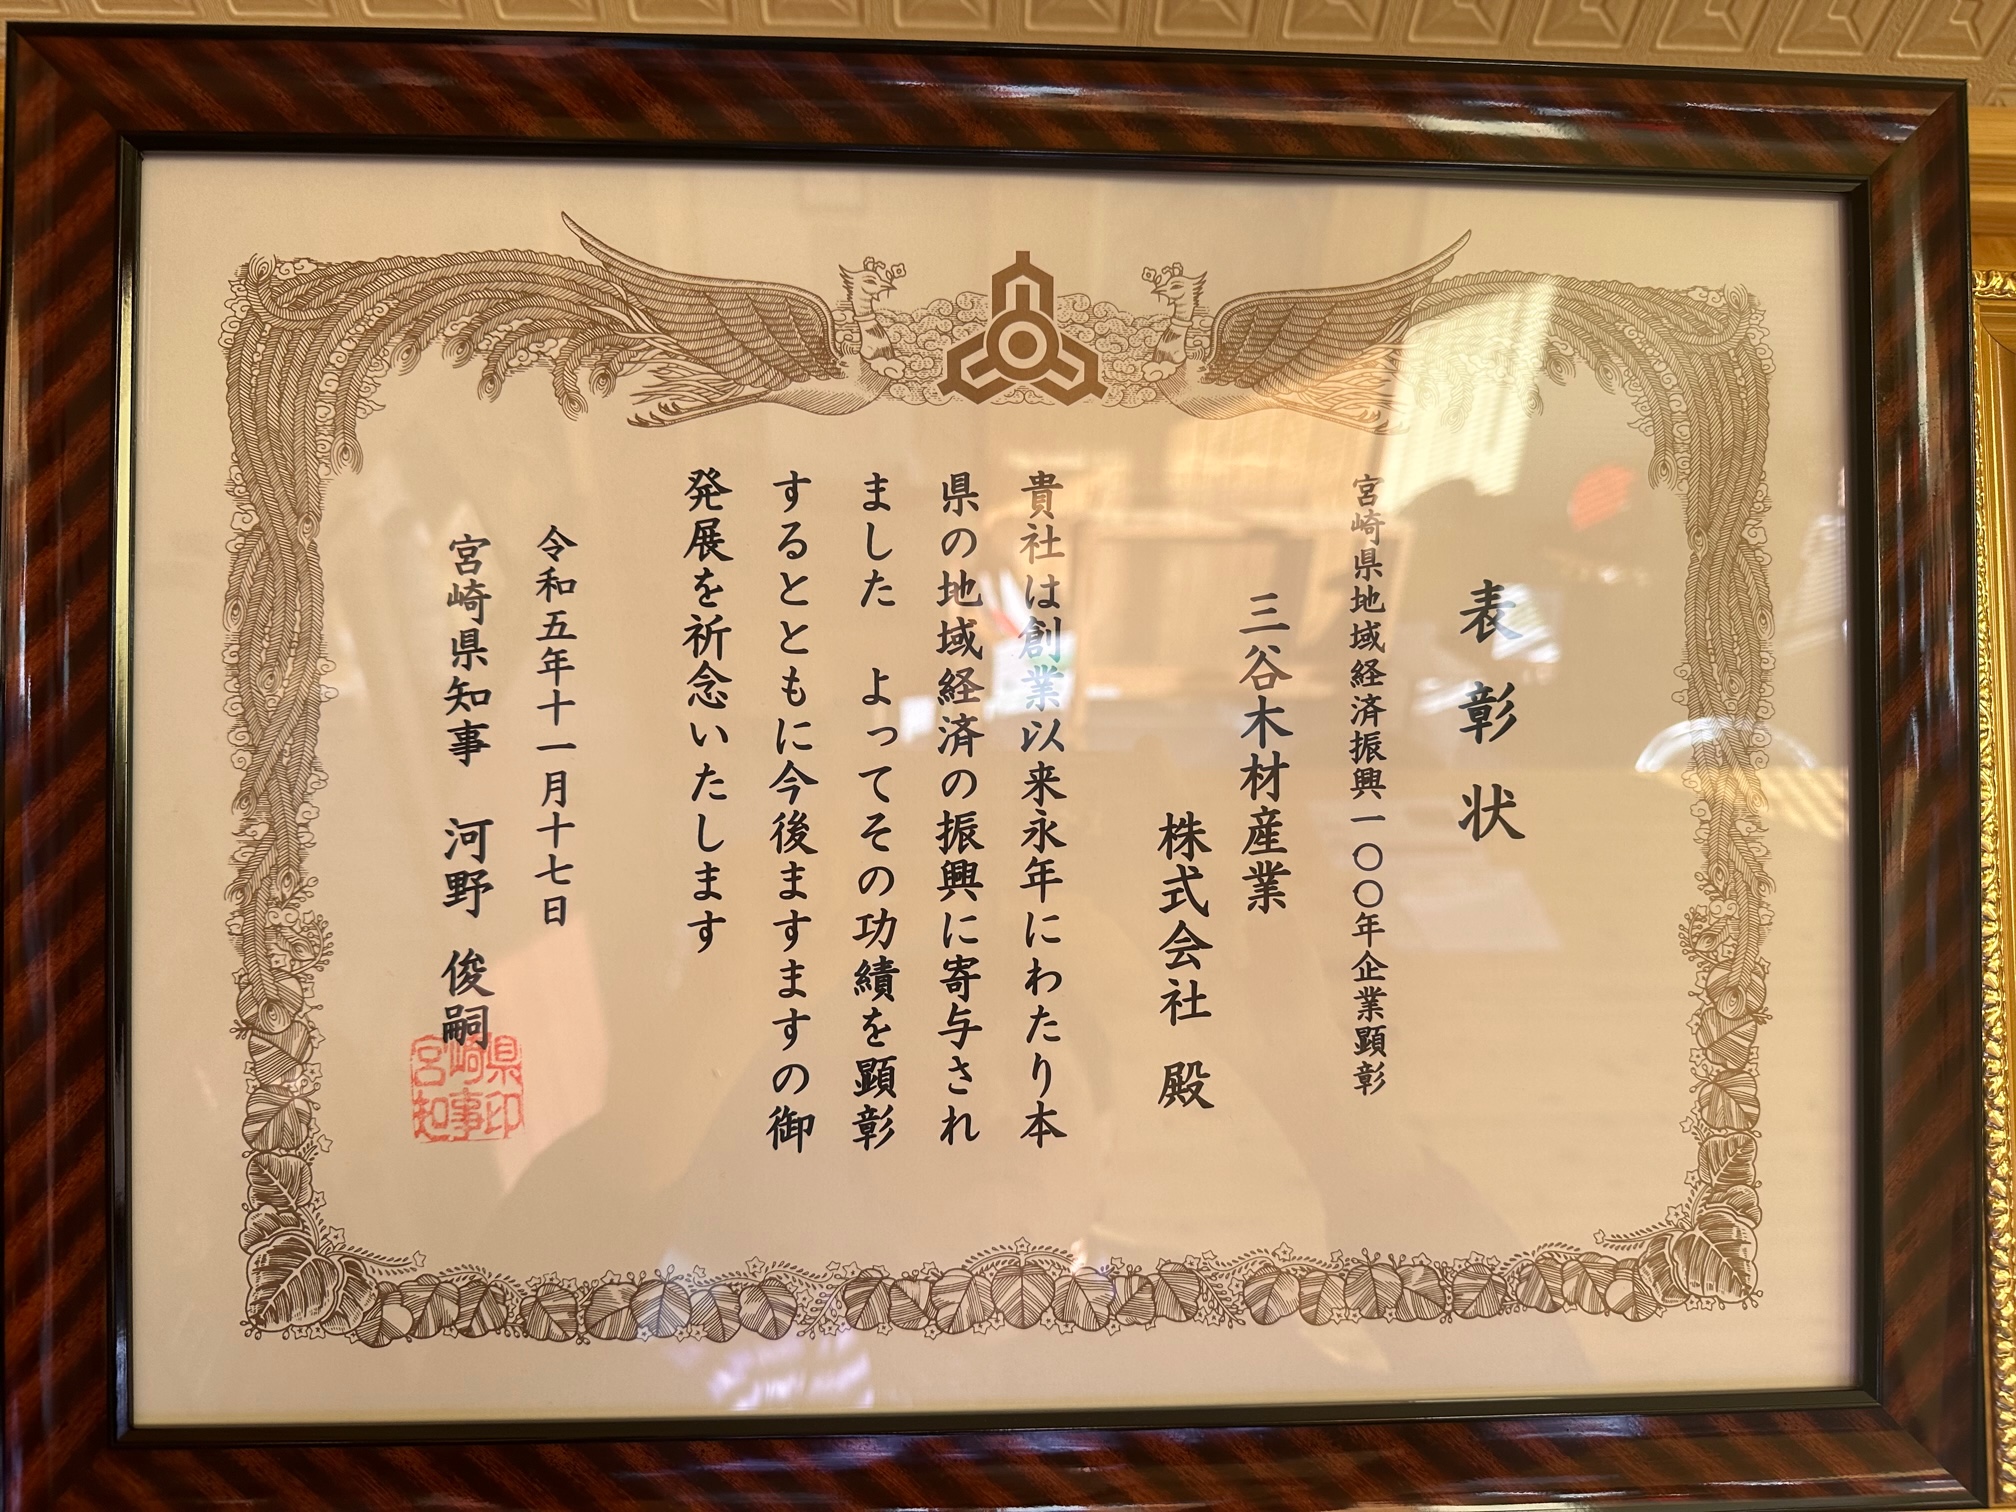 表彰状
宮崎県地域経済振興一〇〇年企業顕彰
三谷木材産業
株式会社 殿
貴社は創業以来永年にわたり本
県の地域経済の振興に寄与され
ました よってその功績を顕彰
するとともに今後ますますの御
発展を祈念いたします
令和五年十一月十七日
宮崎県知事 河野 俊嗣
宮崎県
知事印